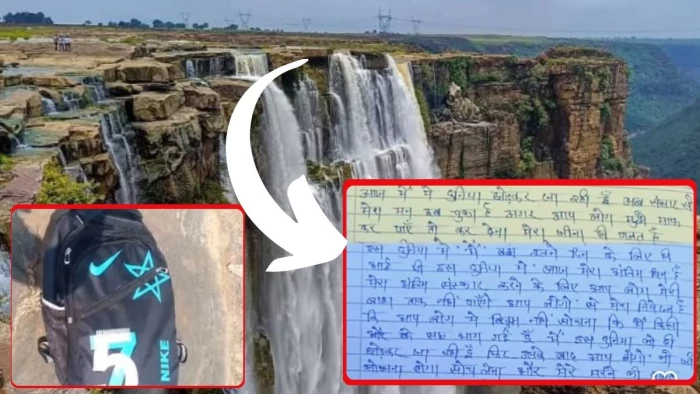 आज मैं ये दुनिया छोड़कर जा रही हूँ अब संसार से
मेरा मन उब चुका है अगर आप लोग मुझे माफ
कर पाएँ तो कर देना मेरा जीना ही गलत है
इस दुनिया में मैं बस इतने दिन के लिए ही
आई थी इस दुनिया में आज मेरा अंतिम दिन है
मेरा अंतिम संस्कार करने के लिए आप लोग मेरी
लाश तक नहीं पाएँगे आप लोगों से मेरा निवेदन है
कि आप लोग ये बिल्कुल नहीं सोचना कि मैं किसी
और के साथ भाग गई हूँ मैं इस दुनिया को ही
छोड़कर जा रही हूँ फिर इसके बाद आप लोगों को जो
सोचना होगा सोच लेना और मेरे मरने की
5
NIKE